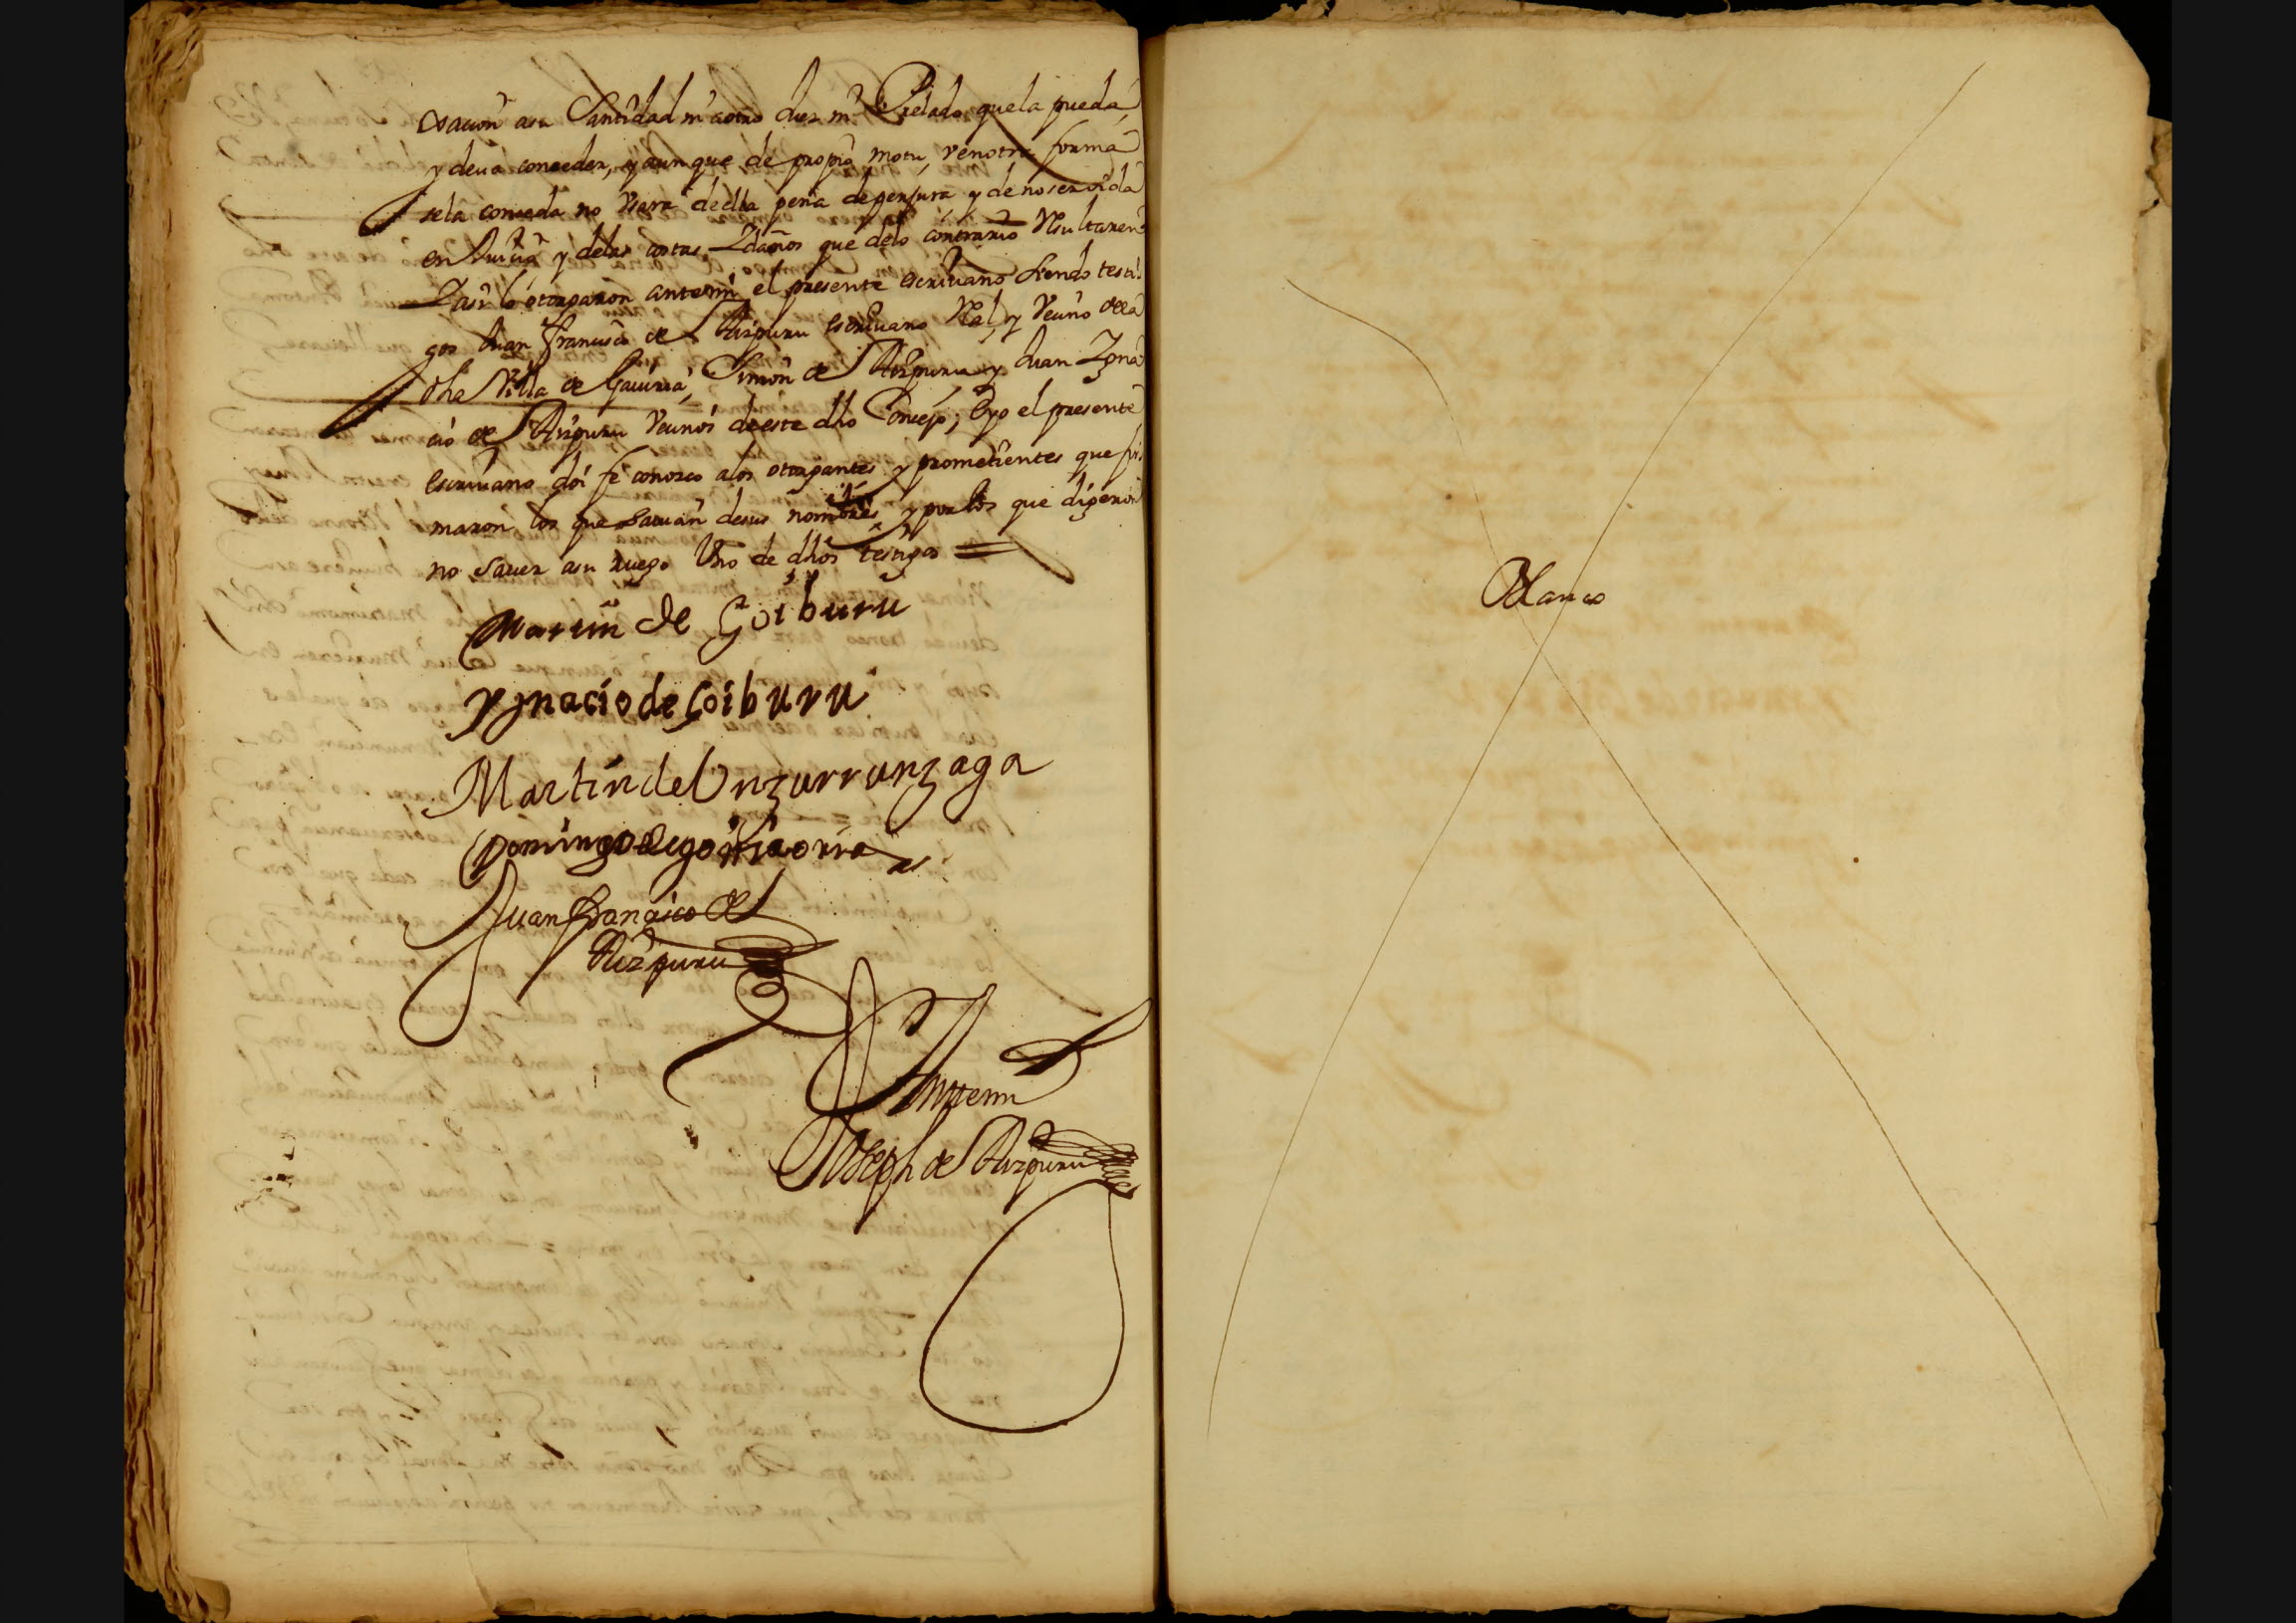 axacion asu Santidad ni aotro Juez ni Prelado que la pueda
y deva conceder, y aunque de propio motu, y en otra forma
se la conceda no Usara de ella pena de perjura y de no ser oida
en Juicio y delas costas Y daños que delo contrario Resultaren
Y asi lo otorgaron ante mi el presente escrivano siendo testi
gos Juan Francisco de Aizpuru escrivano Real y Vecino dela
dha Villa de Gaviria, Simon de Aizpuru y Juan Igna
cio de Aizpuru Vecinos de este dho Concejo; Eyo el presente
escrivano doi fe conozco alos otorgantes y prometientes que fir
maron los que savian de sus nombres y por los que digeron
no saver asu ruego Uno de dhos testigos =
Martin de Goiburu
Ygnacio de Goiburu
Martin de Unzurrunzaga
Domingo de
Juan Francisco de
Aizpuru
Ante mi
Joseph de Aizpuru
Blanco